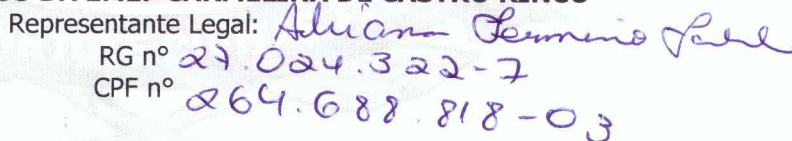 Representante Legal: Adriana Fermino
RG nº 27.024.322-7
CPF nº 264.688.818-03